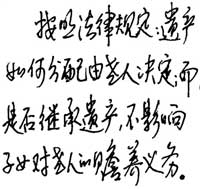 按照法律规定:遗产
如何分配由老人决定,而
是否继承遗产,不影响
子女对老人的赡养义务。